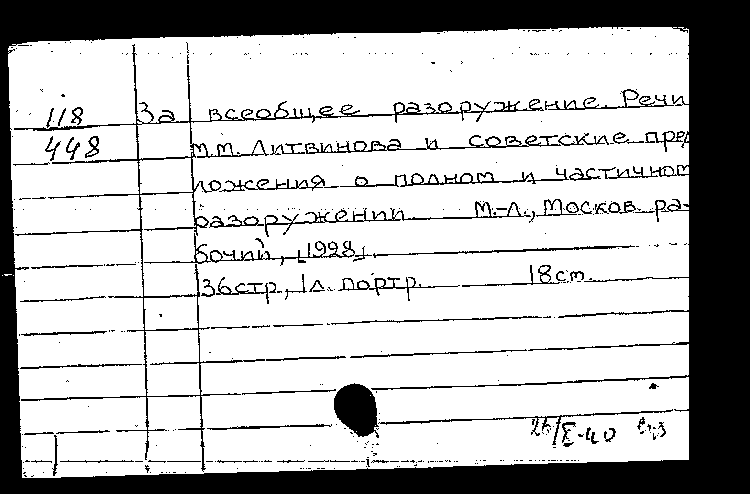 118 За всеобщее разоружение. Речи
448 М.М. Литвинова и советские пред
ложения о полном и частичном
разоружении М.-Л., Москов. ра-
бочий, [1928].
36стр, 1л. портр. 18см.
26/X-40